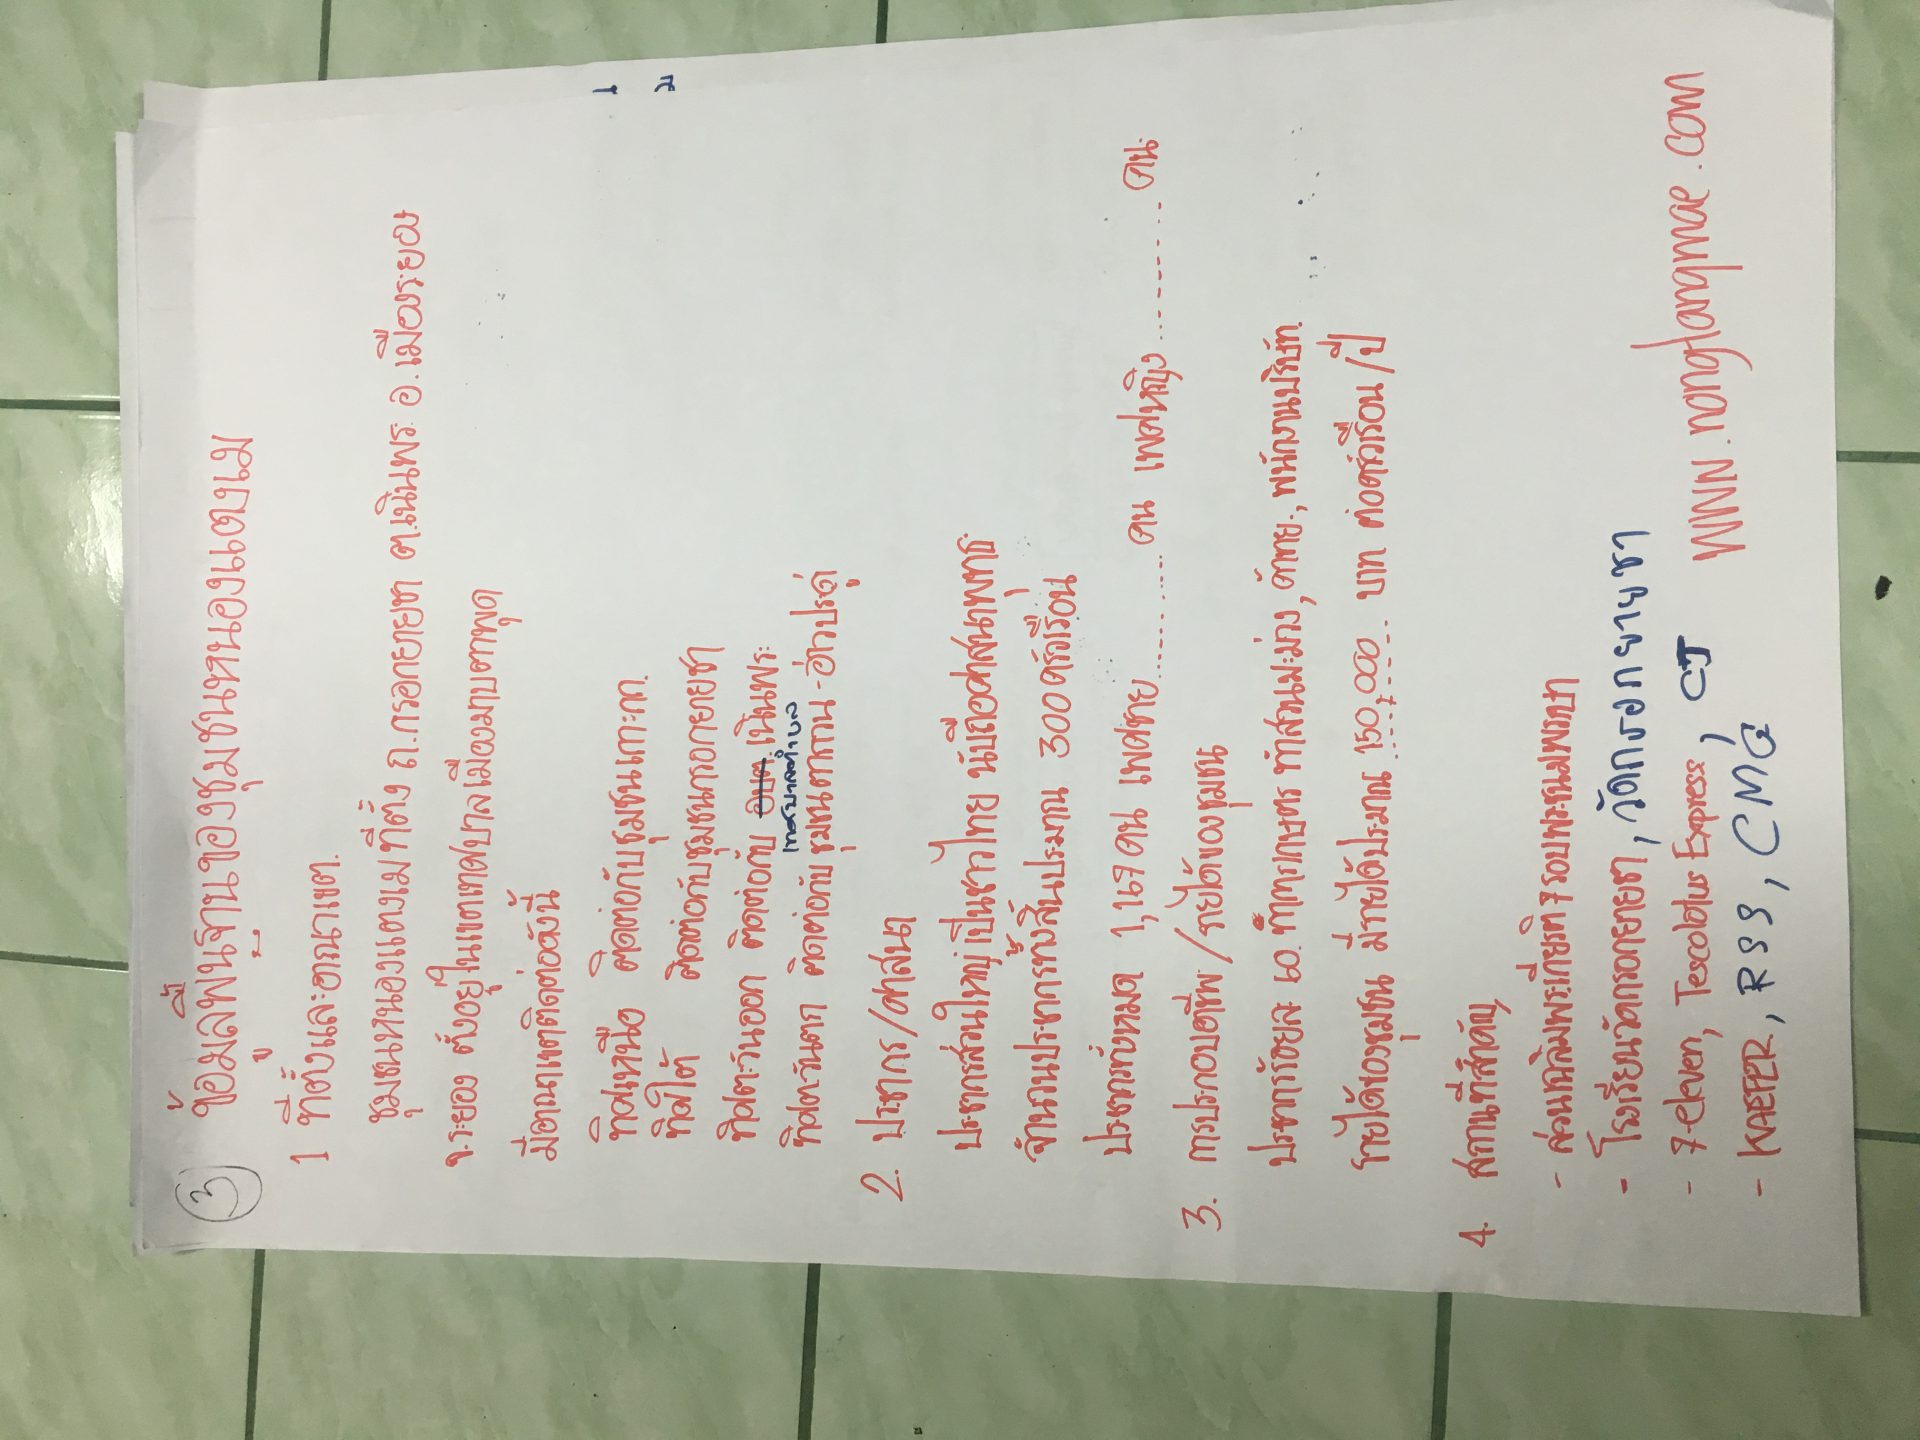 ③ ข้อมูลพื้นฐานของชุมชนหนองแตงเม
1 ที่ตั้งและอาณาเขต.
ชุมชนหนองแตงเม ที่ตั้ง ถ.กรอกยายชา ต.เนินพระ อ.เมืองระยอง
จ.ระยอง ตั้งอยู่ในเขตเทศบาลเมืองมาบตาพุด
มีอาณาเขตติดต่อดังนี้
ทิศเหนือ ติดต่อกับชุมชนเกาะกก
ทิศใต้ ติดต่อกับชุมชนกรอกยายชา
ทิศตะวันออก ติดต่อกับ อบต. เนินพระ
เทศบาลตำบล
ทิศตะวันตก ติดต่อกับ ชุมชนตากวน - อ่าวประดู่
2. ประชากร/ศาสนา
ประชากรส่วนใหญ่เป็นชาวไทย นับถือศาสนาพุทธ
จำนวนประชากรทั้งสิ้นประมาณ 300 ครัวเรือน
ประชากรทั้งหมด 1,167 คน เพศชาย............ คน เพศหญิง ............ คน
3. การประกอบอาชีพ/รายได้ของชุมชน
ประชากรร้อยละ ๖๐ ทำการเกษตร ทำสวนมะม่วง, ค้าขาย, พนักงานบริษัท
รายได้ของชุมชน มีรายได้ประมาณ 150,000 บาท ต่อครัวเรือน/ปี
4. สถานที่สำคัญ
- สวนเฉลิมพระเกียรติ 7 รอบพระชนมพรรษา
- โรงเรียนวัดกรอกยายชา, วัดกรอกยายชา
- 7-eleven, Tescolotus Express, CJ
- KAEFER, RSS, CMG
WWW.nongtangmae.com